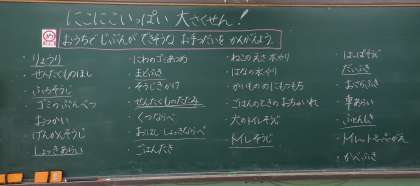 にこにこいっぱい 大さくせん!
め おうちで じぶんが できそうな お手つだいを かんがえよう。
・りょうり
・せんたくものほし
・ふろそうじ
・ゴミのぶんべつ
・おつかい
・げんかんそうじ
・しょっきあらい
・にわのゴミあつめ
・まどふき
・そうじきかけ
・せんたくものたたみ
・くつならべ
・おはし しょっきならべ
・ごはんたき
・ねこのえさ 水やり
・はなの水やり
・かいものの にもつもち
・ごはんのときの おちゃいれ
・犬のトイレそうじ
・トイレそうじ
・はっぱそうじ
・だいふき
・おさらふき
・車あらい
・ふとんしき
・トイレットペーパーかえ
・かべふき